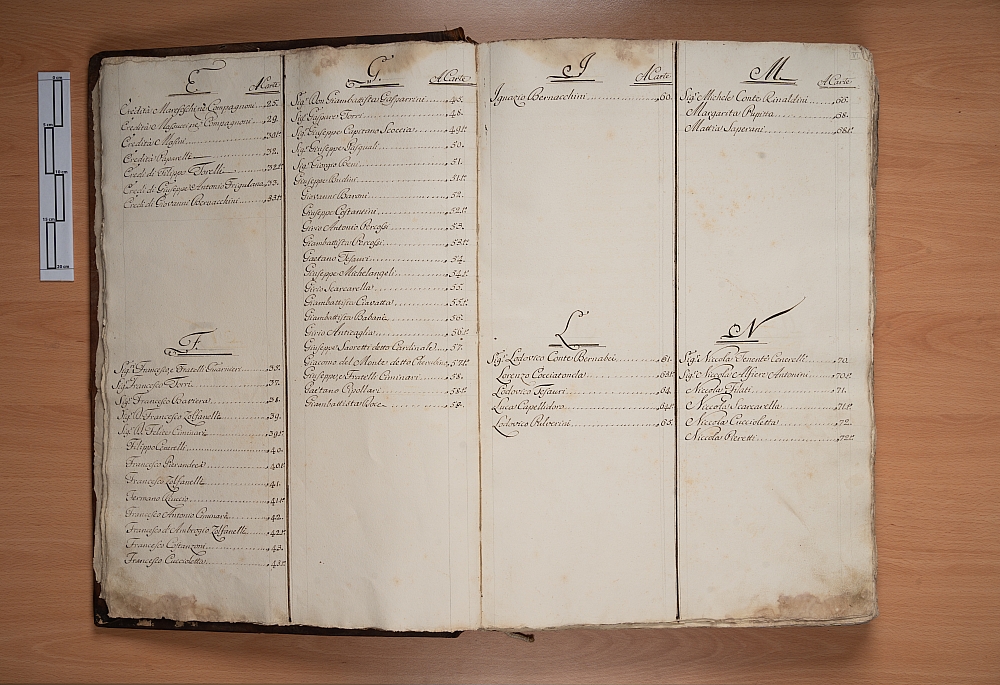 E.
A Carte
Eredità Marefischi, e Compagnoni 25.
Eredità Masuccini, e Compagnoni 29.
Eredità Masini
Eredità Paparelli 32.
Eredi di Filippo Torelli 32t.o
Eredi di Giuseppe Antonio Frigulana 33.
Eredi di Giovanni Bernacchini 33t.o
F.
Sig.r Francesco, e Fratelli Guarnieri 35.
Sig.r Francesco Torri 37.
Sig.r Francesco Baviera 38.
Sig.r D. Francesco Zolfanelli 39.
Sig.r D. Felice Ciminari 39t.o
Filippo Cenerelli 40.
Francesco Pierandrea 40t.o
Francesco Zolfanelli 41.
Fermano 41t.o
Francesco Antonio Ciminari 42.
Francesco d'Ambrogio Zolfanelli 42t.o
Francesco Costanzoni 43.
Francesco Cuccioletta 43t.o
G.
A Carte
Sig.r Don Giambattista Gasparrini 45.
Sig.r Gasparo Torri 48.
Sig.r Giuseppe Capitano Scoccia 49t.o
Sig.r Giuseppe Pasquali 50.
Sig.r Giorgio Beni 51.
Giuseppe Budini 51t.o
Giovanni Baroni 52.
Giuseppe Costantini 52t.o
Girio Antonio Percossi 53.
Giambattista Percossi 53t.o
Gaetano Tesauri 54.
Giuseppe Michelangeli 54t.o
Girio Scarcarella 55.
Giambattista Ciavatta 55t.o
Giambattista Babani 56.
Girio Anticaglia 56t.o
Giuseppe Saoretti detto Cardinale 57.
Giacomo del Monte detto Cherubino 57t.o
Giuseppe, e Fratelli Ciminari 58.
Gaetano Cipollari 58t.o
Giambattista Voce 59.
I
A Carte
Ignazio Bernacchini 60.
L
Sig.r Lodovico Conte Bernabei 61.
Lorenzo Cocciatanela 63t.o
Lodovico Tesauri 64.
Luca Capellidoro 64t.o
Lodovico Pulverini 65.
M
A Carte
Sig.r Michele Conte Rinaldini 66.
Margarita Pupitta 68.
Mattia Saperani 68t.o
N
Sig.r Niccola Tenente Cenerelli 70.
Sig.r Niccola Alfiere Antonini 70t.o
Niccola Filati 71.
Niccola Scarcarella 71t.o
Niccola Cuccioletta 72.
Niccola Pieretti 72t.o
5 cm
10 cm
15 cm
20 cm